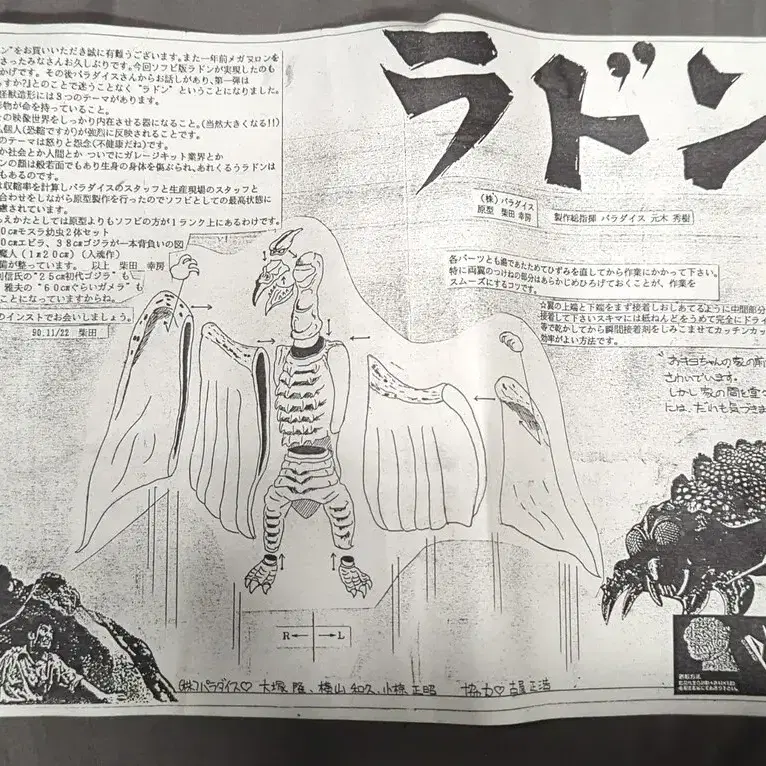 ン”をお買いいただき誠に有難うございます。また一年前メガヌロンを
さったみなさんお久しぶりです。今回ソフビ版ラドンが実現したのも
かげです。その後パラダイスさんからお話しがあり、第一弾は
すか?』とのことで迷うことなく“ラドン”ということになりました。
怪獣造形には3つのテーマがあります。
形物が命を持っていること。
その映像世界をしっかり内在させる器になること。(当然大きくなる!!)
個人(恐縮ですが)が強烈に反映されることです。
のテーマは怒りと怨念(不健康だね)です。
か社会とか人間とか ついでにガレージキット業界とか
ンの顔は般若面でもあり生身の身体を傷ぶられ、あれくるうラドンは
もあるのです。
は収縮率を計算しパラダイスのスタッフと生産現場のスタッフと
合わせをしながら原型製作を行ったのでソフビとしての最高状態に
慮されています。
えかたとしては原型よりもソフビの方が1ランク上にあるわけです。
0㎝モスラ幼虫2体セット
0㎝エビラ、38㎝ゴジラが一本背負いの図
魔人(1m20㎝)(入魂作)
画が整っています。 以上 柴田 幸房
利信氏の“25㎝初代ゴジラ”も
雅夫の“60㎝ぐらいガメラ”も
ことになっていますからね。
のインストでお会いしましょう。
90.11/22 柴田
ラドン
(株)パラダイス
原型 柴田 幸房
製作総指揮 パラダイス 元木 秀樹
各パーツとも湯であたためてひずみを直してから作業にかかって下さい。
特に両翼のつけねの部分はあらかじめひろげておくことが、作業を
スムーズにするコツです。
☆翼の上端と下端をまず接着しおしあてるように中間部分
接着して下さいスキマには紙ねんどをうめて完全にドライ
等で乾かしてから瞬間接着剤をしみこませてカッチンカッ
効率がよい方法です。
“おキヨちゃんの家の前
さわいでいます。
しかし家の間を堂々
には、だれも気づきま
R L
(株)パラダイス♡ 大塚 隆、横山 和久、小椋 正昭 協力♡ 古屋 正浩